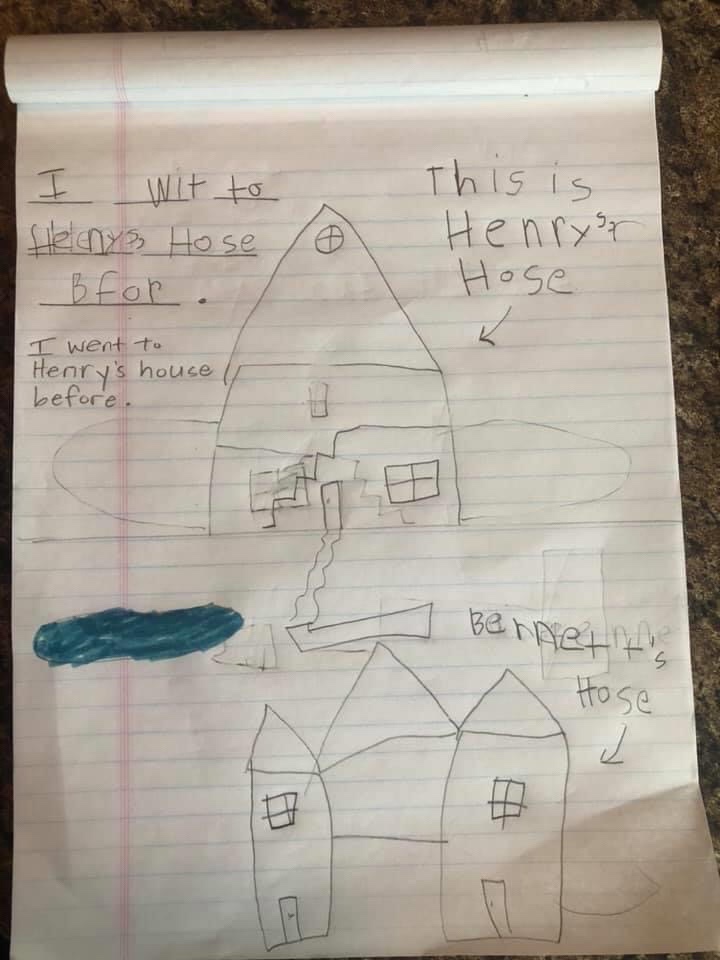 I Wit to
Henrys Hose
Bfor.
I went to
Henry's house
before.
This is
Henry's
Hose
Bennett's
Hose